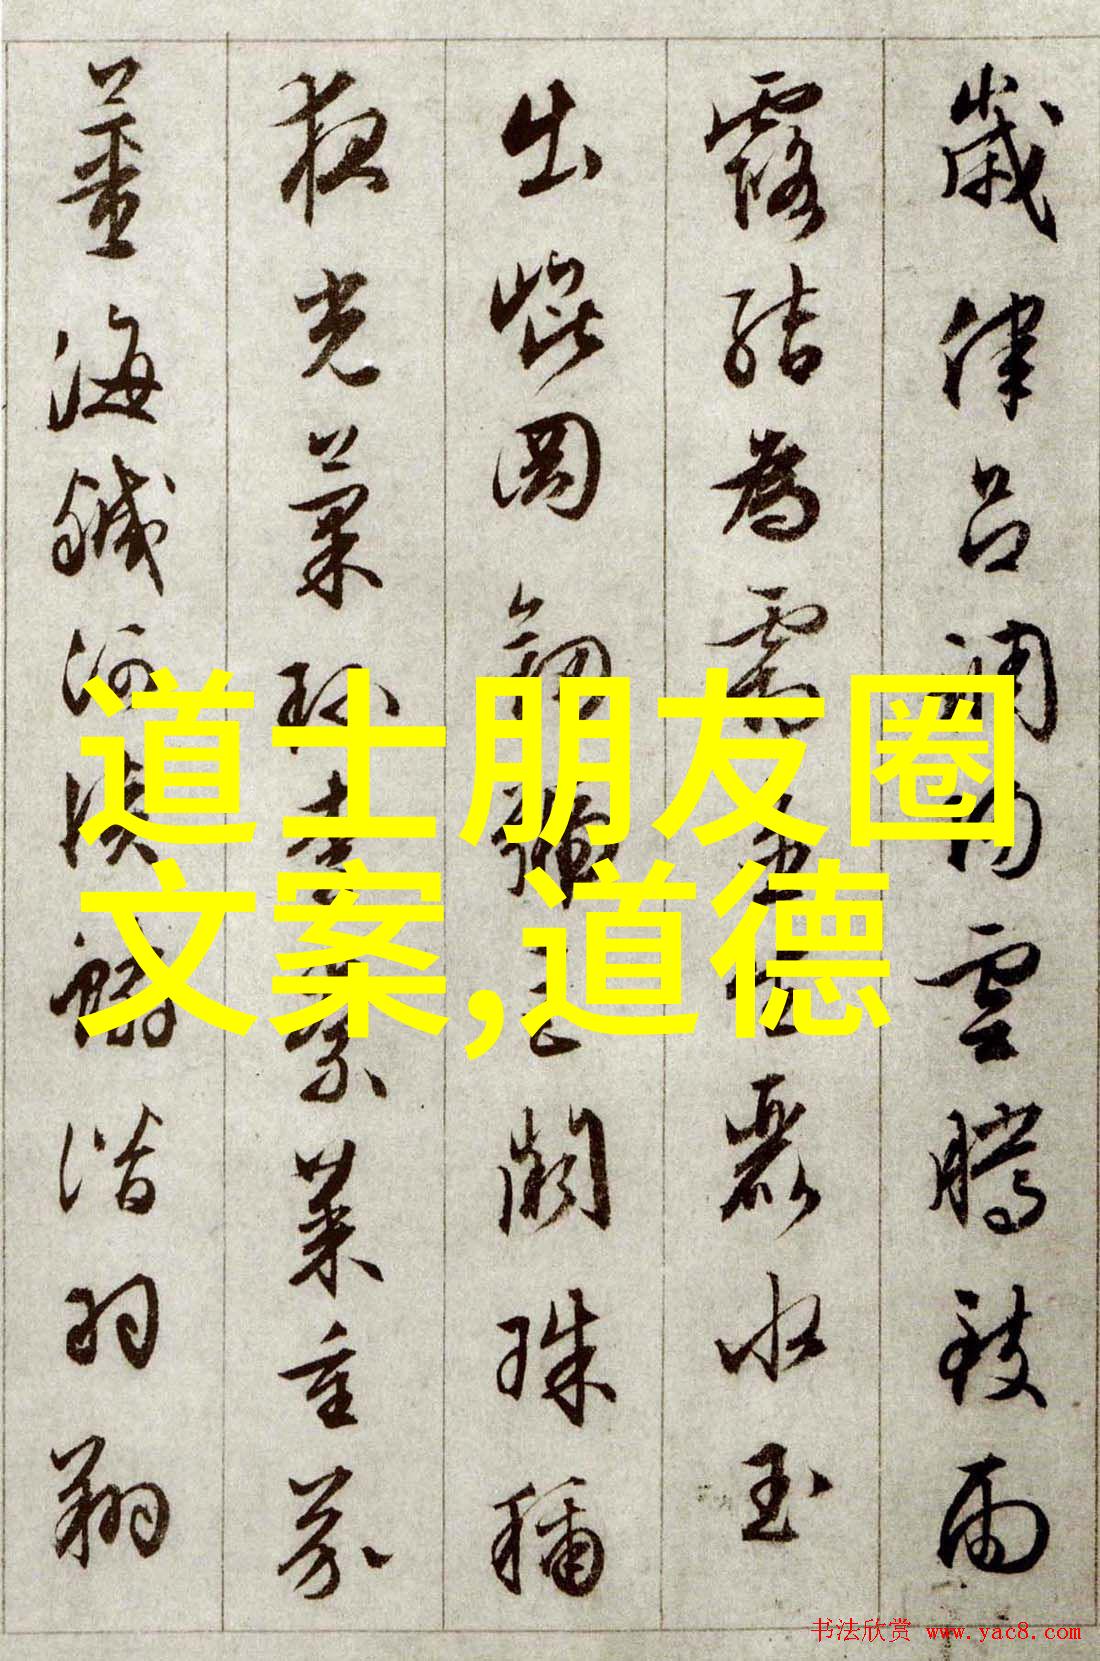 歲律呂調陽雲騰致雨
露結為霜金生麗水玉
出崐岡劒號巨闕珠稱
夜光菓珎李柰菜重芥
薑海鹹河淡鱗潛羽翔
道士朋友圈
文案,道德
书法欣赏 www.yac8.com